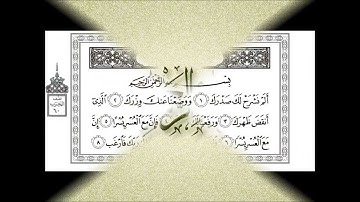 بِسْمِ اللَّهِ الرَّحْمَٰنِ الرَّحِيمِ
أَلَمْ نَشْرَحْ لَكَ صَدْرَكَ ١ وَوَضَعْنَا عَنكَ وِزْرَكَ ٢ الَّذِي
أَنقَضَ ظَهْرَكَ ٣ وَرَفَعْنَا ٤ فَإِنَّ مَعَ الْعُسْرِ يُسْرًا ٥ إِنَّ
مَعَ الْعُسْرِ يُسْرًا ٦ رَبِّكَ فَارْغَب ٨